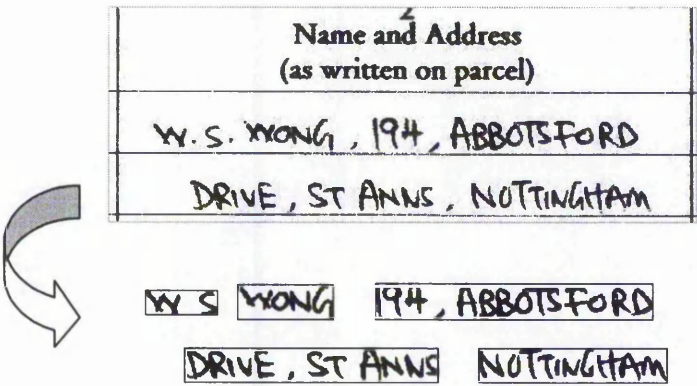 Name and Address
(as written on parcel)
W. S. WONG , 194 , ABBOTSFORD
DRIVE , ST ANNS , NOTTINGHAM
W S WONG 194 , ABBOTSFORD
DRIVE , ST ANNS NOTTINGHAM